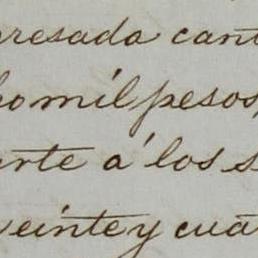 presada cant
ho mil pesos,
arte á los s
veinte y cua